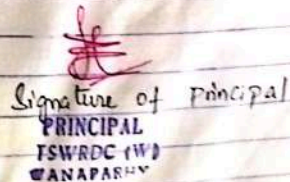 Signature of principal
PRINCIPAL
TSWRDC (W)
WANAPARHY